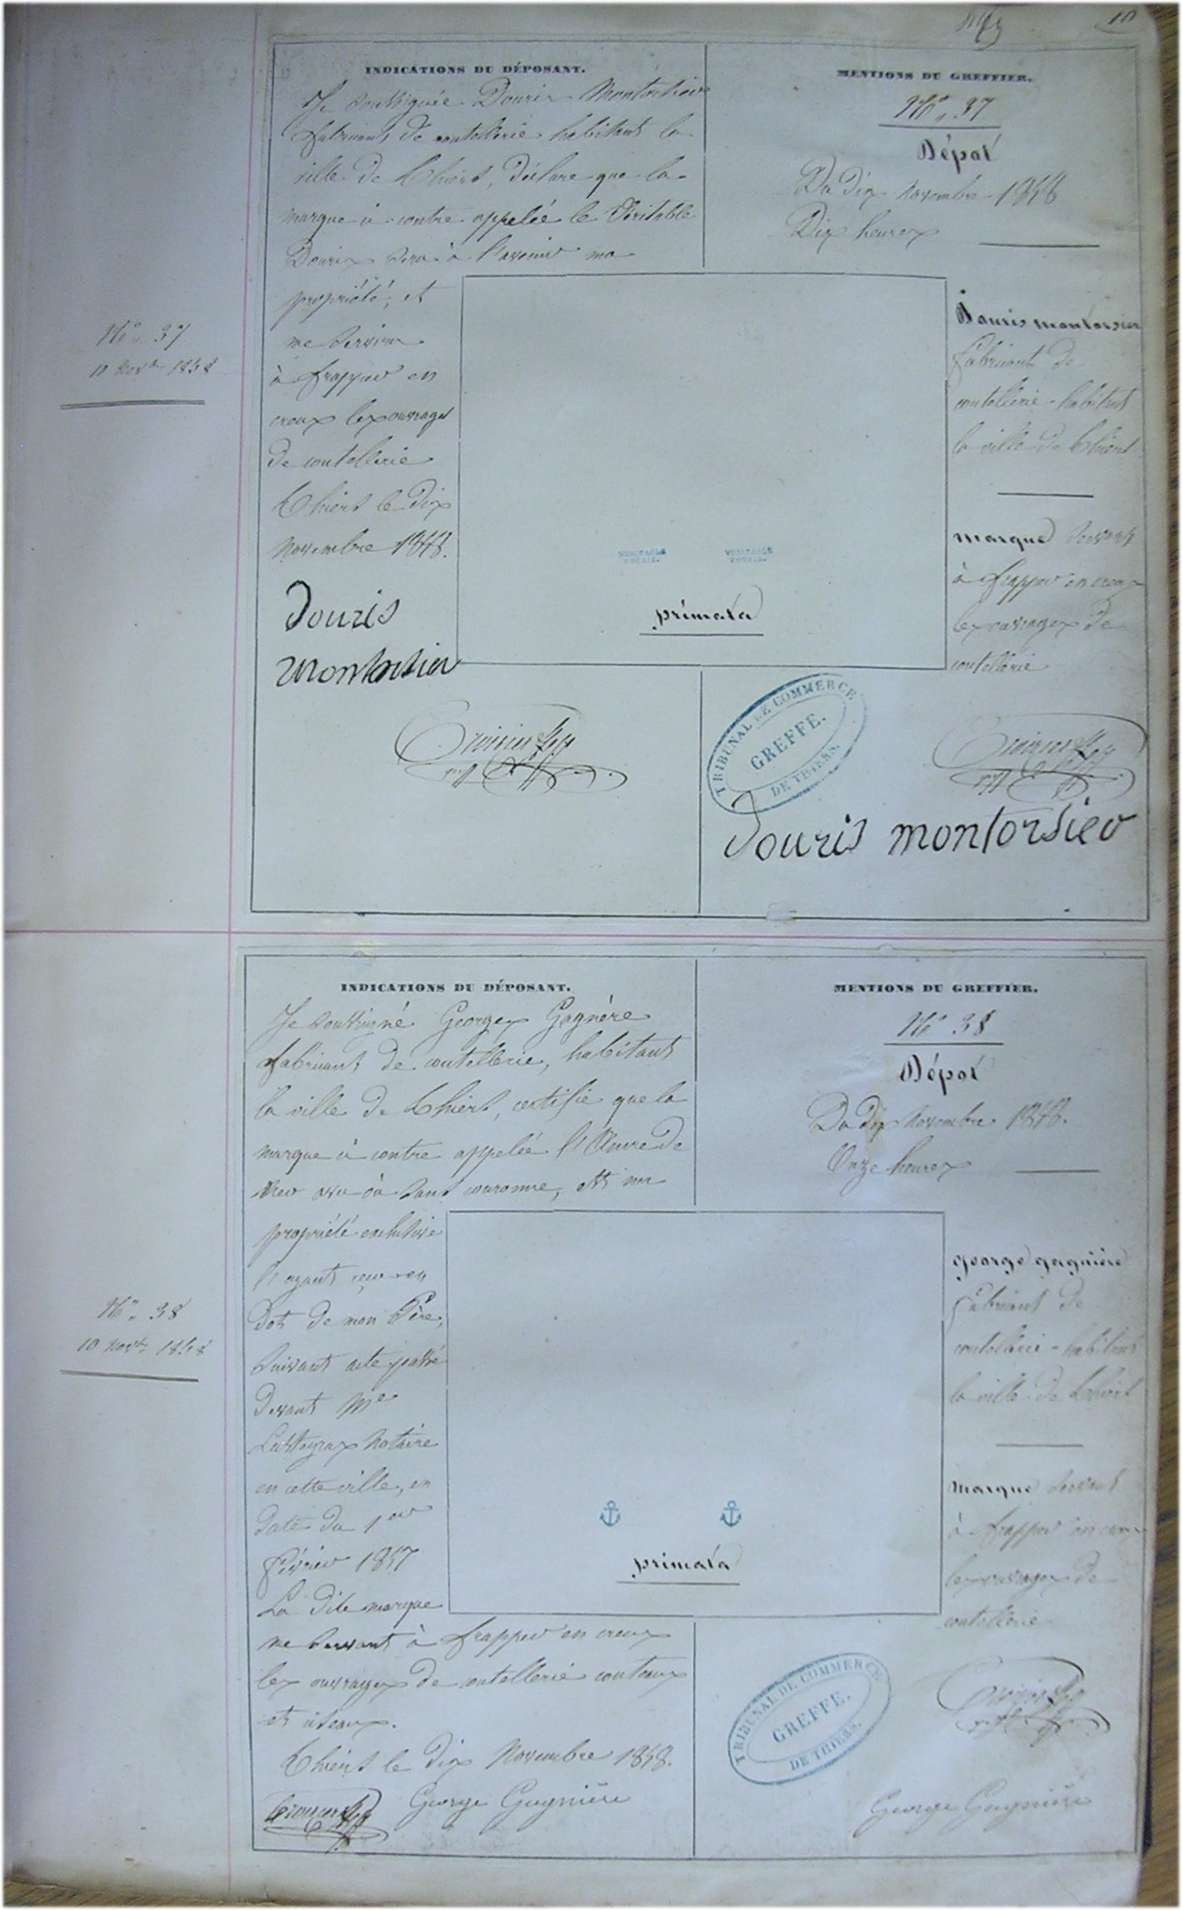 10
N° 37
10 Nov.bre 1858
INDICATIONS DU DÉPOSANT.
Je soussignée Douris Montorsier
fabricant de coutellerie habitant la
ville de Thiers, déclare que la
marque ci-contre appelée le Véritable
Douris sera à l'avenir ma
propriété, et
me servira
à frapper en
creux les ouvrages
de coutellerie
Thiers le dix
Novembre 1858.
Douris
Montorsier
MENTIONS DU GREFFIER.
N° 37
Dépot
Du dix novembre 1858
Dix heures
Douris montorsier
fabricant de
coutellerie habitant
la ville de Thiers
marque servant
à frapper en creux
les ouvrages de
coutellerie
VERITABLE
DOURIS.
VERITABLE
DOURIS.
primata
TRIBUNAL DE COMMERCE
GREFFE.
DE THIERS.
Douris montorsier
N° 38
10 Nov.bre 1858
INDICATIONS DU DÉPOSANT.
Je soussigné George Gagnère
fabricant de coutellerie, habitant
la ville de Thiers, certifie que la
marque ci contre appelée l'Ancre de
avec ou sans couronne, est ma
propriété exclusive
l'ayant reçu en
Dot de mon Père,
suivant acte passé
devant Me
notaire
en cette ville, en
date du 1er
février 1857
La dite marque
me servant à frapper en creux
les ouvrages de coutellerie couteaux
et ciseaux.
Thiers le dix Novembre 1858.
George Gagnière
MENTIONS DU GREFFIER.
N° 38
Dépot
Du dix Novembre 1858.
Onze heures
george gagnière
fabricant de
coutellerie habitant
la ville de Thiers
marque servant
à frapper en creux
les ouvrages de
coutellerie
primata
TRIBUNAL DE COMMERCE
GREFFE.
DE THIERS.
George Gagnière